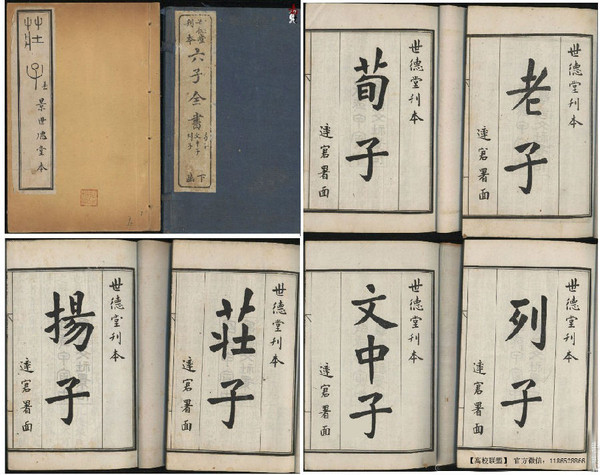 莊子
景世德堂本
六子全書
下
世德堂刊本
荀子
達窅署面
世德堂刊本
老子
達窅署面
世德堂刊本
揚子
達窅署面
世德堂刊本
莊子
達窅署面
世德堂刊本
文中子
達窅署面
世德堂刊本
列子
達窅署面
【高校联盟】 官方微信：